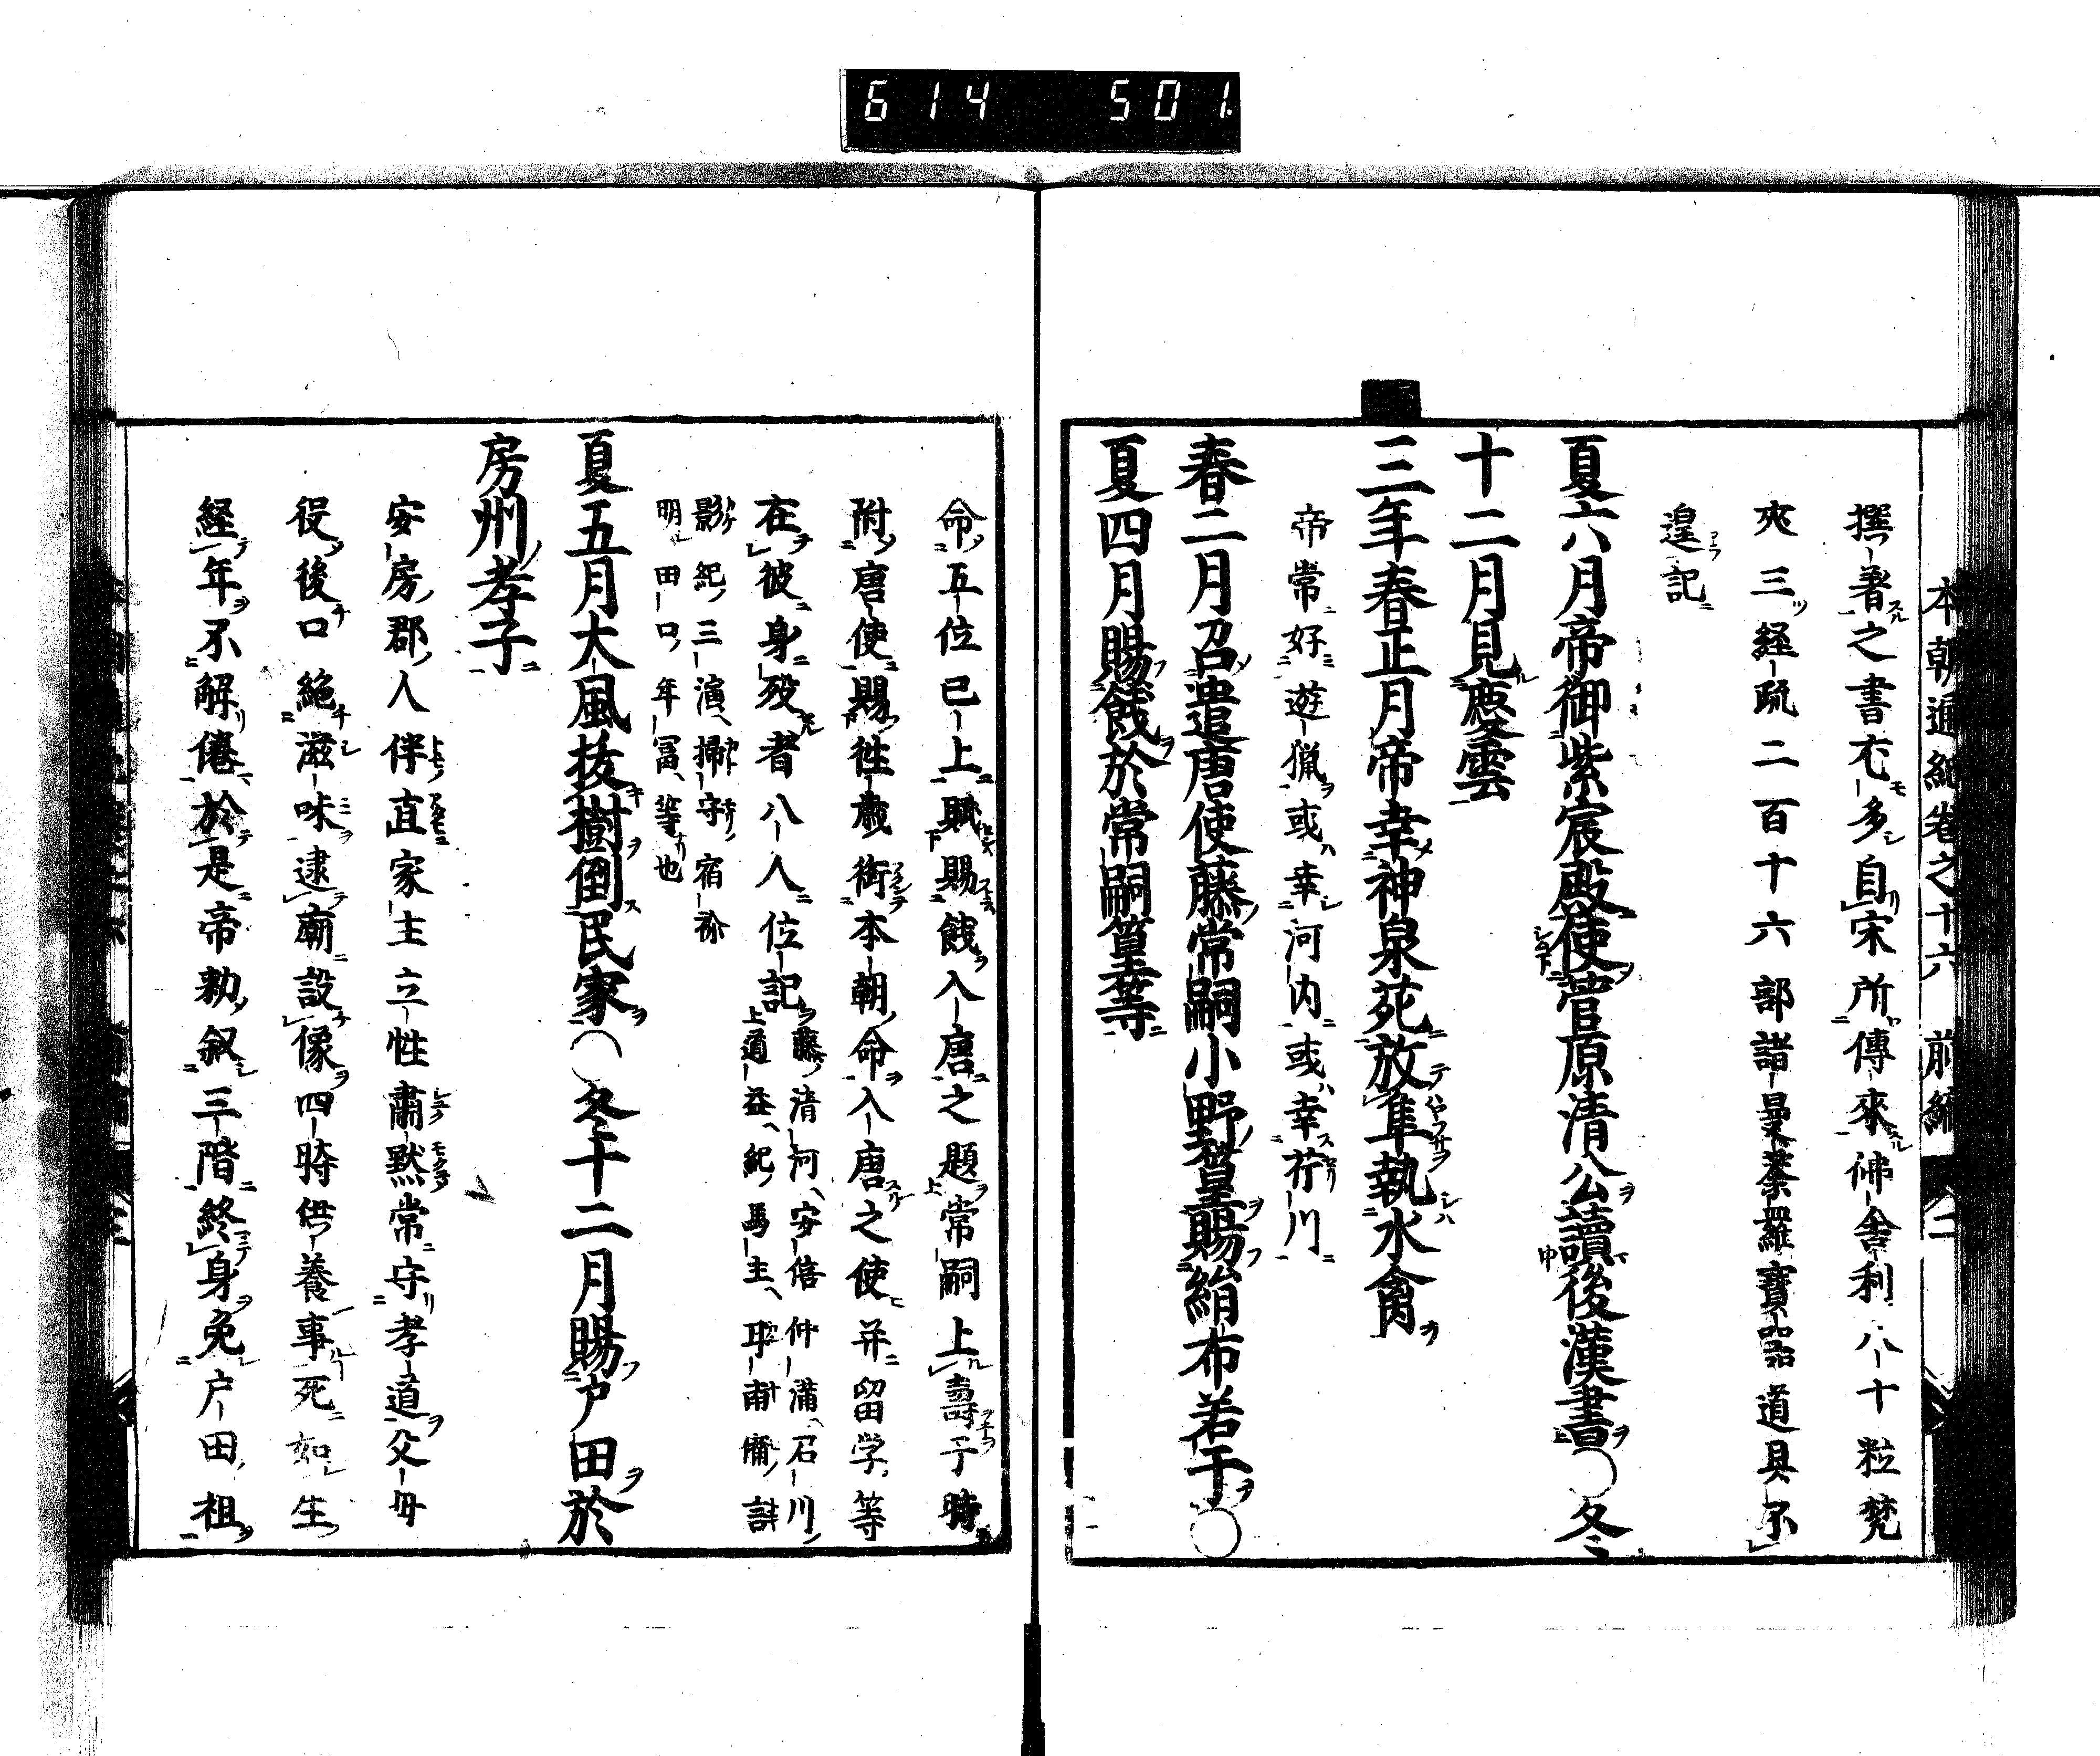 614 501
本朝通紀巻之十六 前編 二
撰著之書衣多自宋所傳來佛舍利八十粒梵
夾三経疏二百十六部諸曼荼羅寶器道具不
遑記
夏六月帝御紫宸殿使菅原清公讀後漢書○冬
十二月見慶雲
三年春正月帝幸神泉苑放隼執水禽
帝常好遊猟或幸河内或幸芹川
春二月召遣唐使藤常嗣小野篁賜絹布若干○
夏四月賜餞於常嗣篁等
命五位已上賦賜餞入唐之題常嗣上壽于時
附唐使賜徃歳銜本朝命入唐之使并留学等
在彼身歿者八人位記
藤清河、安倍仲満、石川
道益、紀馬主、甘南備、計
影紀三演、掃守宿祢
明田口年冨、等也
夏五月大風抜樹倒民家○冬十二月賜戸田於
房州孝子
安房郡人伴直家主立性肅黙常守孝道父母
役後口絶滋味逮廟設像四時供養事死如生
経年不解倦於是帝勅叙三階終身免戸田祖